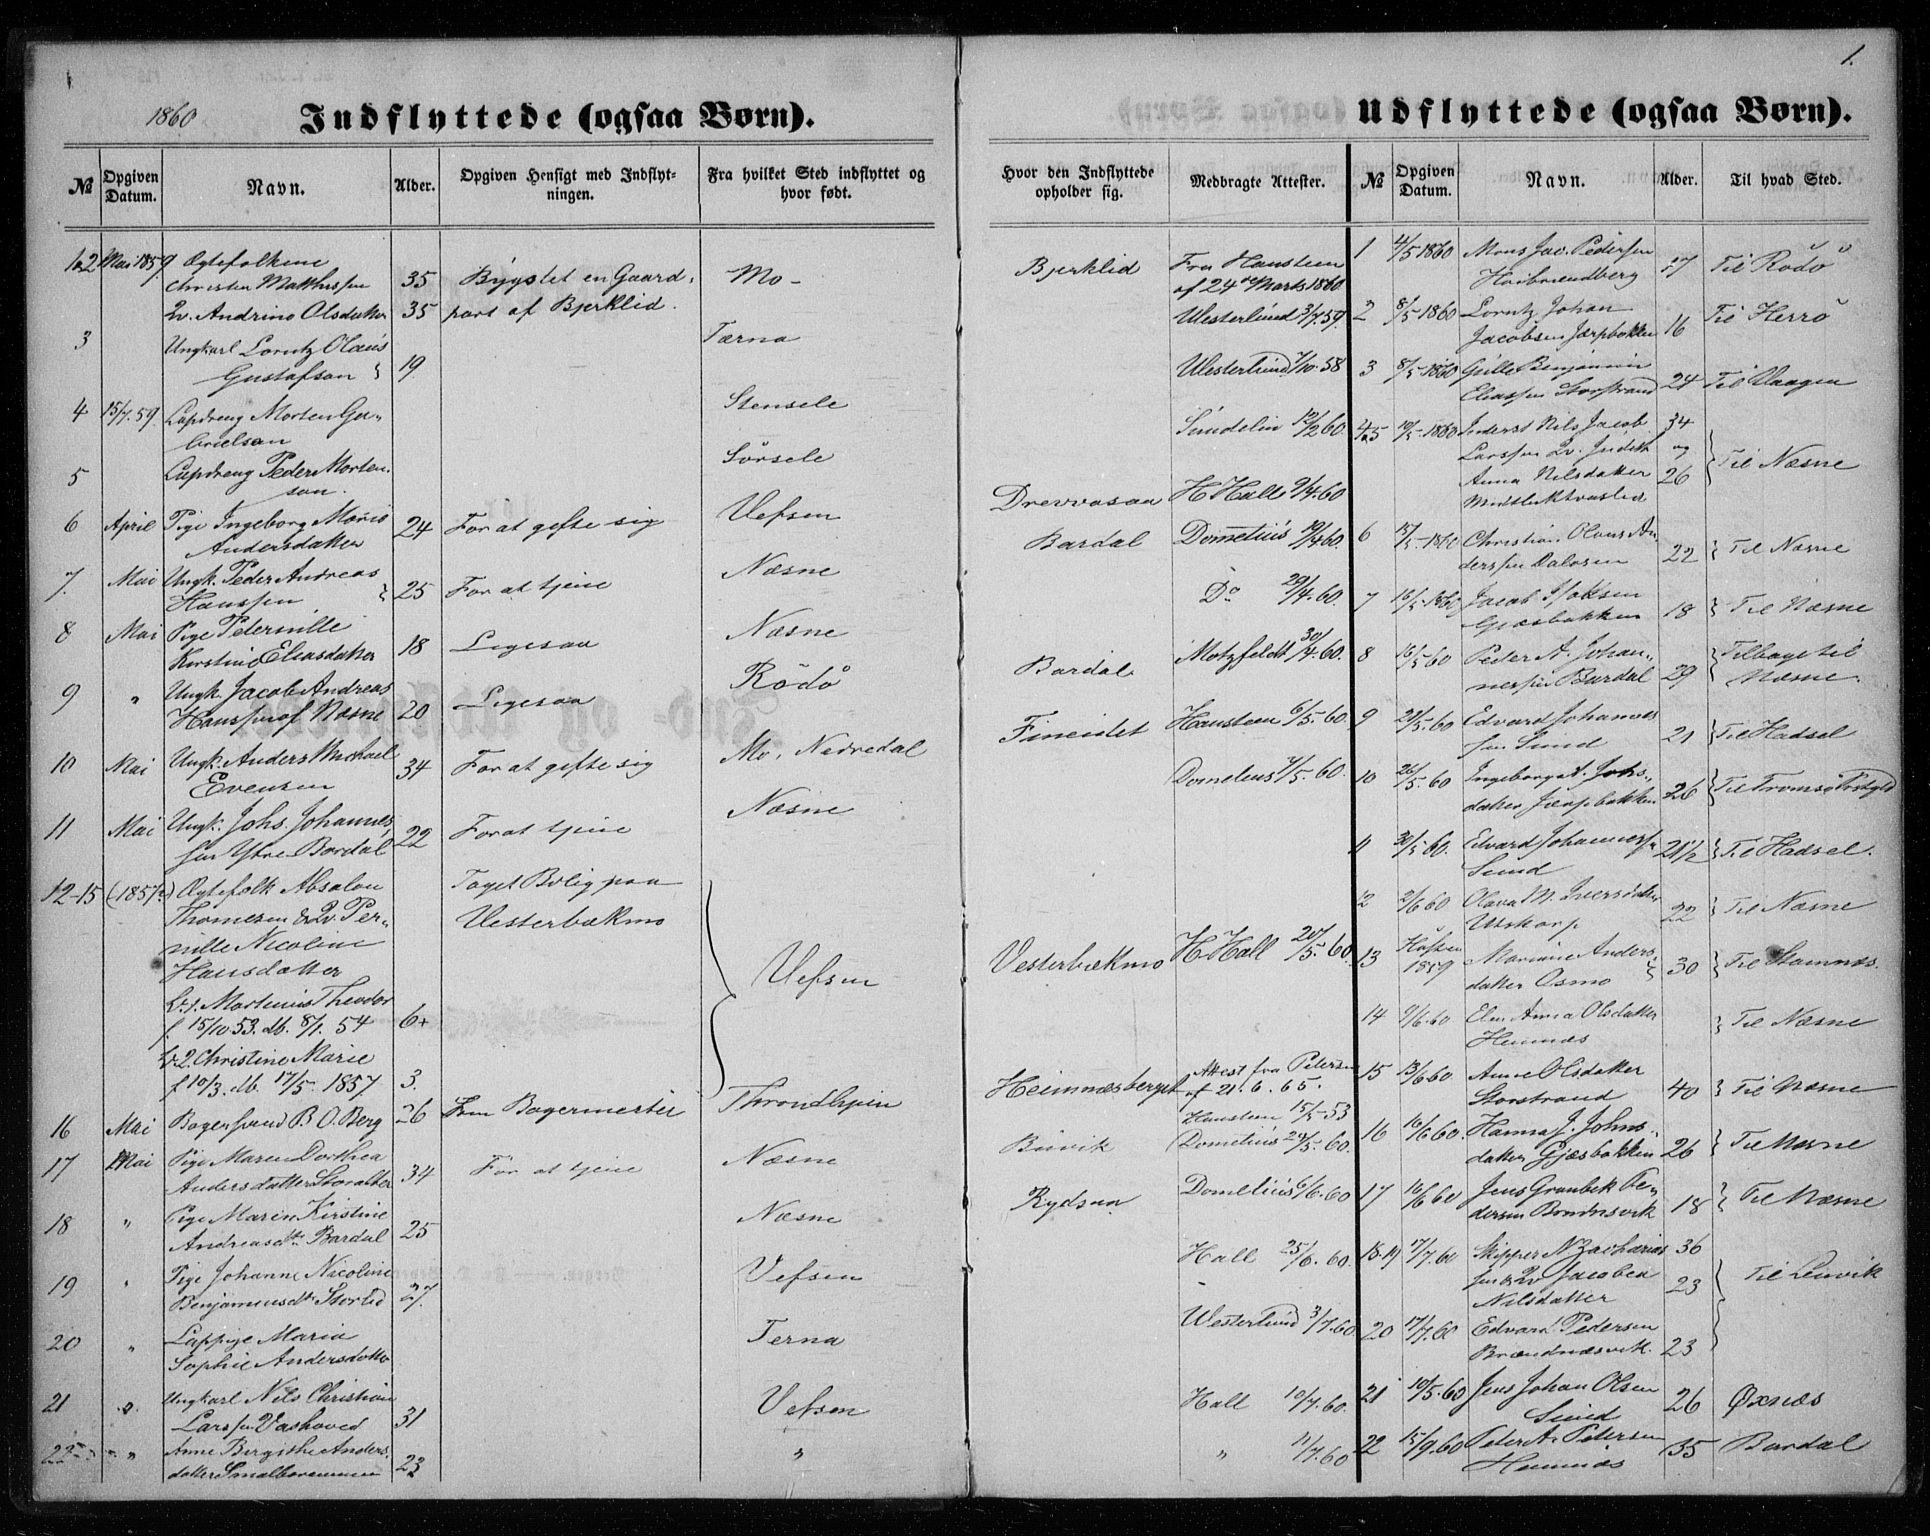 1.
1860
Indflyttede (ogsaa Børn).
№
Opgiven Datum.
Navn.
Alder.
Opgiven Hensigt med Indflytningen.
Fra hvilket Sted indflyttet og hvor født.
Hvor den Indflyttede opholder sig.
Medbragte Attester.
1.2 Mai 1859 Ægtefolkene
Christen Matthissen 35 Bygslet en Gaard- Mo- Bjerklid Fra Hansteen
af 24de Marts 1860
Andrine Olsdatter 35 part af Bjerklid.
3 Ungkarl Lorntz Olaus Tærna Westerlund 3/7.59
Gustafson 19
Westerlund 7/10.58
4 15/7.59. Lapdreng Morten Ga- Stensele
brielsen Sundelin 12/2 60.
5 Lapdreng Peder Morten- Sörsele
son.
6 April Pige Ingeborg Maria Vefsen Drevvasaa H Hall 9/4.60
Andersdatter 24 For at gifte sig
7. Mai Ungk. Peder Andreas Næsne Bardal Dometius 19/4 60.
Hanssen 25 For at tjene
8 Mai Pige Peternille Næsne Do 29/4.60.
Kirstine Eliasdatter 18 Ligesaa
9 " Ungk. Jacob Andreas Rödö Bardal Motzfeldt 30/4.60.
Hanssen af Næsne 20 Ligesaa
10 Mai Ungk. Anders Michael Mo, Nedredal Fineidet Hansteen 6/5.60.
Evensen 34 For at gifte sig
11 Mai Ungk. Johs. Johannes- Næsne Dometius 7/5.60.
sen Ytre Bardal 22 For at tjene
12-15 Ægtefolk Absalon Taget Bolig paa
Thomesen & Per- Vesterbækmo
nille Nicoline
Hansdatter Vefsen Vesterbækmo H Hall 20/5.60.
Martinus Theodor
f. 15/10 53. db. 8/1. 54 6
2. Christine Marie
f 10/3. db. 17/5. 1857 3.
16 Mai Bagersvend B. O. Berg 26 Som Bagermester Throndhjem Heimnæsberget Attest fra Petersen
af 21.6.65.
Hansteen 15/5-53
17 Mai Pige Maren Dorthea Næsne Dometius 20/5.60.
Andersdatter 34 For at tjene
18 " Pige Maren Kirstine Næsne Rydsaa Dometius 6/6.60
Andreasdtr Bardal 25
19 " Pige Johanne Nicoline Vefsen Hall 25/6.60.
Benjaminsdtr Storlid 27.
20 " Lappige Maria Terna Westerlund 3/7.60
Sophie Andersdatter
21 " Ungkarl Nils Christian Vefsen Hall 10/7.60.
Larssen 31
22 " Anne Andersdatter 23 " " 11/7.60
Udflyttede (ogsaa Børn).
№
Opgiven Datum.
Navn.
Alder.
Til hvad Sted.
1 4/5 1860 Mons Jac. Pedersen
17 Til Rödö
2 8/5 1860 Lorntz Johan
Jacobsen Jærpbakken 16 Til Herrö
3 8/5-1860 Benjamin
Eliassen Storstrand 24 Til Vaagen
4.5 10/5-1860 Inderst Nils Jacob 34
Larssen Judith og
Anna Nilsdatter 26 Til Næsne
6 15/5-1860 Christian Olaus An-
derssen 22 Til Næsne
7 16/5 1860 Jacob
18 Til Næsne
8 16/5 60 Peder A. Johan-
nessen Bardal 29 Tilbage til Næsne.
9 21/5.60 Edvard Johannes-
sen Sund 21 Til Hadsel
10 26/5.60 Ingeborg A. Johs.-
datter Jærpbakken 26 Til Tromsö
11 30/5 60. Edvard Johannessen
Sund 21 1/2 Til Hadsel.
12 2/6 60 Olava M. Iversdatter
Utskarp 22 Til Næsne
13 Hösten 1859 Marianne Anders-
datter Osmo 30 Til Stamnæs.
14 9/6.60 Elen Anna Olsdatter
Hemnæs Til Næsne
15 13/6 60 Anne Olsdatter
Storstrand 40 Til Næsne
16 16/6 60. Hanna J. Johns-
datter 26 Til Næsne
17 16/6 60 Jens Pe-
dersen 18 Til Næsne
18-19 17/7.60 Skipper N Zacharias- 36
sen & Jacobea
Nilsdatter 23 Til Lenvik
20 17/7.60 Edvard Pedersen
23
21 10/5.60 Jens Johan Olsen
Sund 26 Øxnæs
22 15/9.60 Peter A. Petersen
Hemnæs 35 Bardal